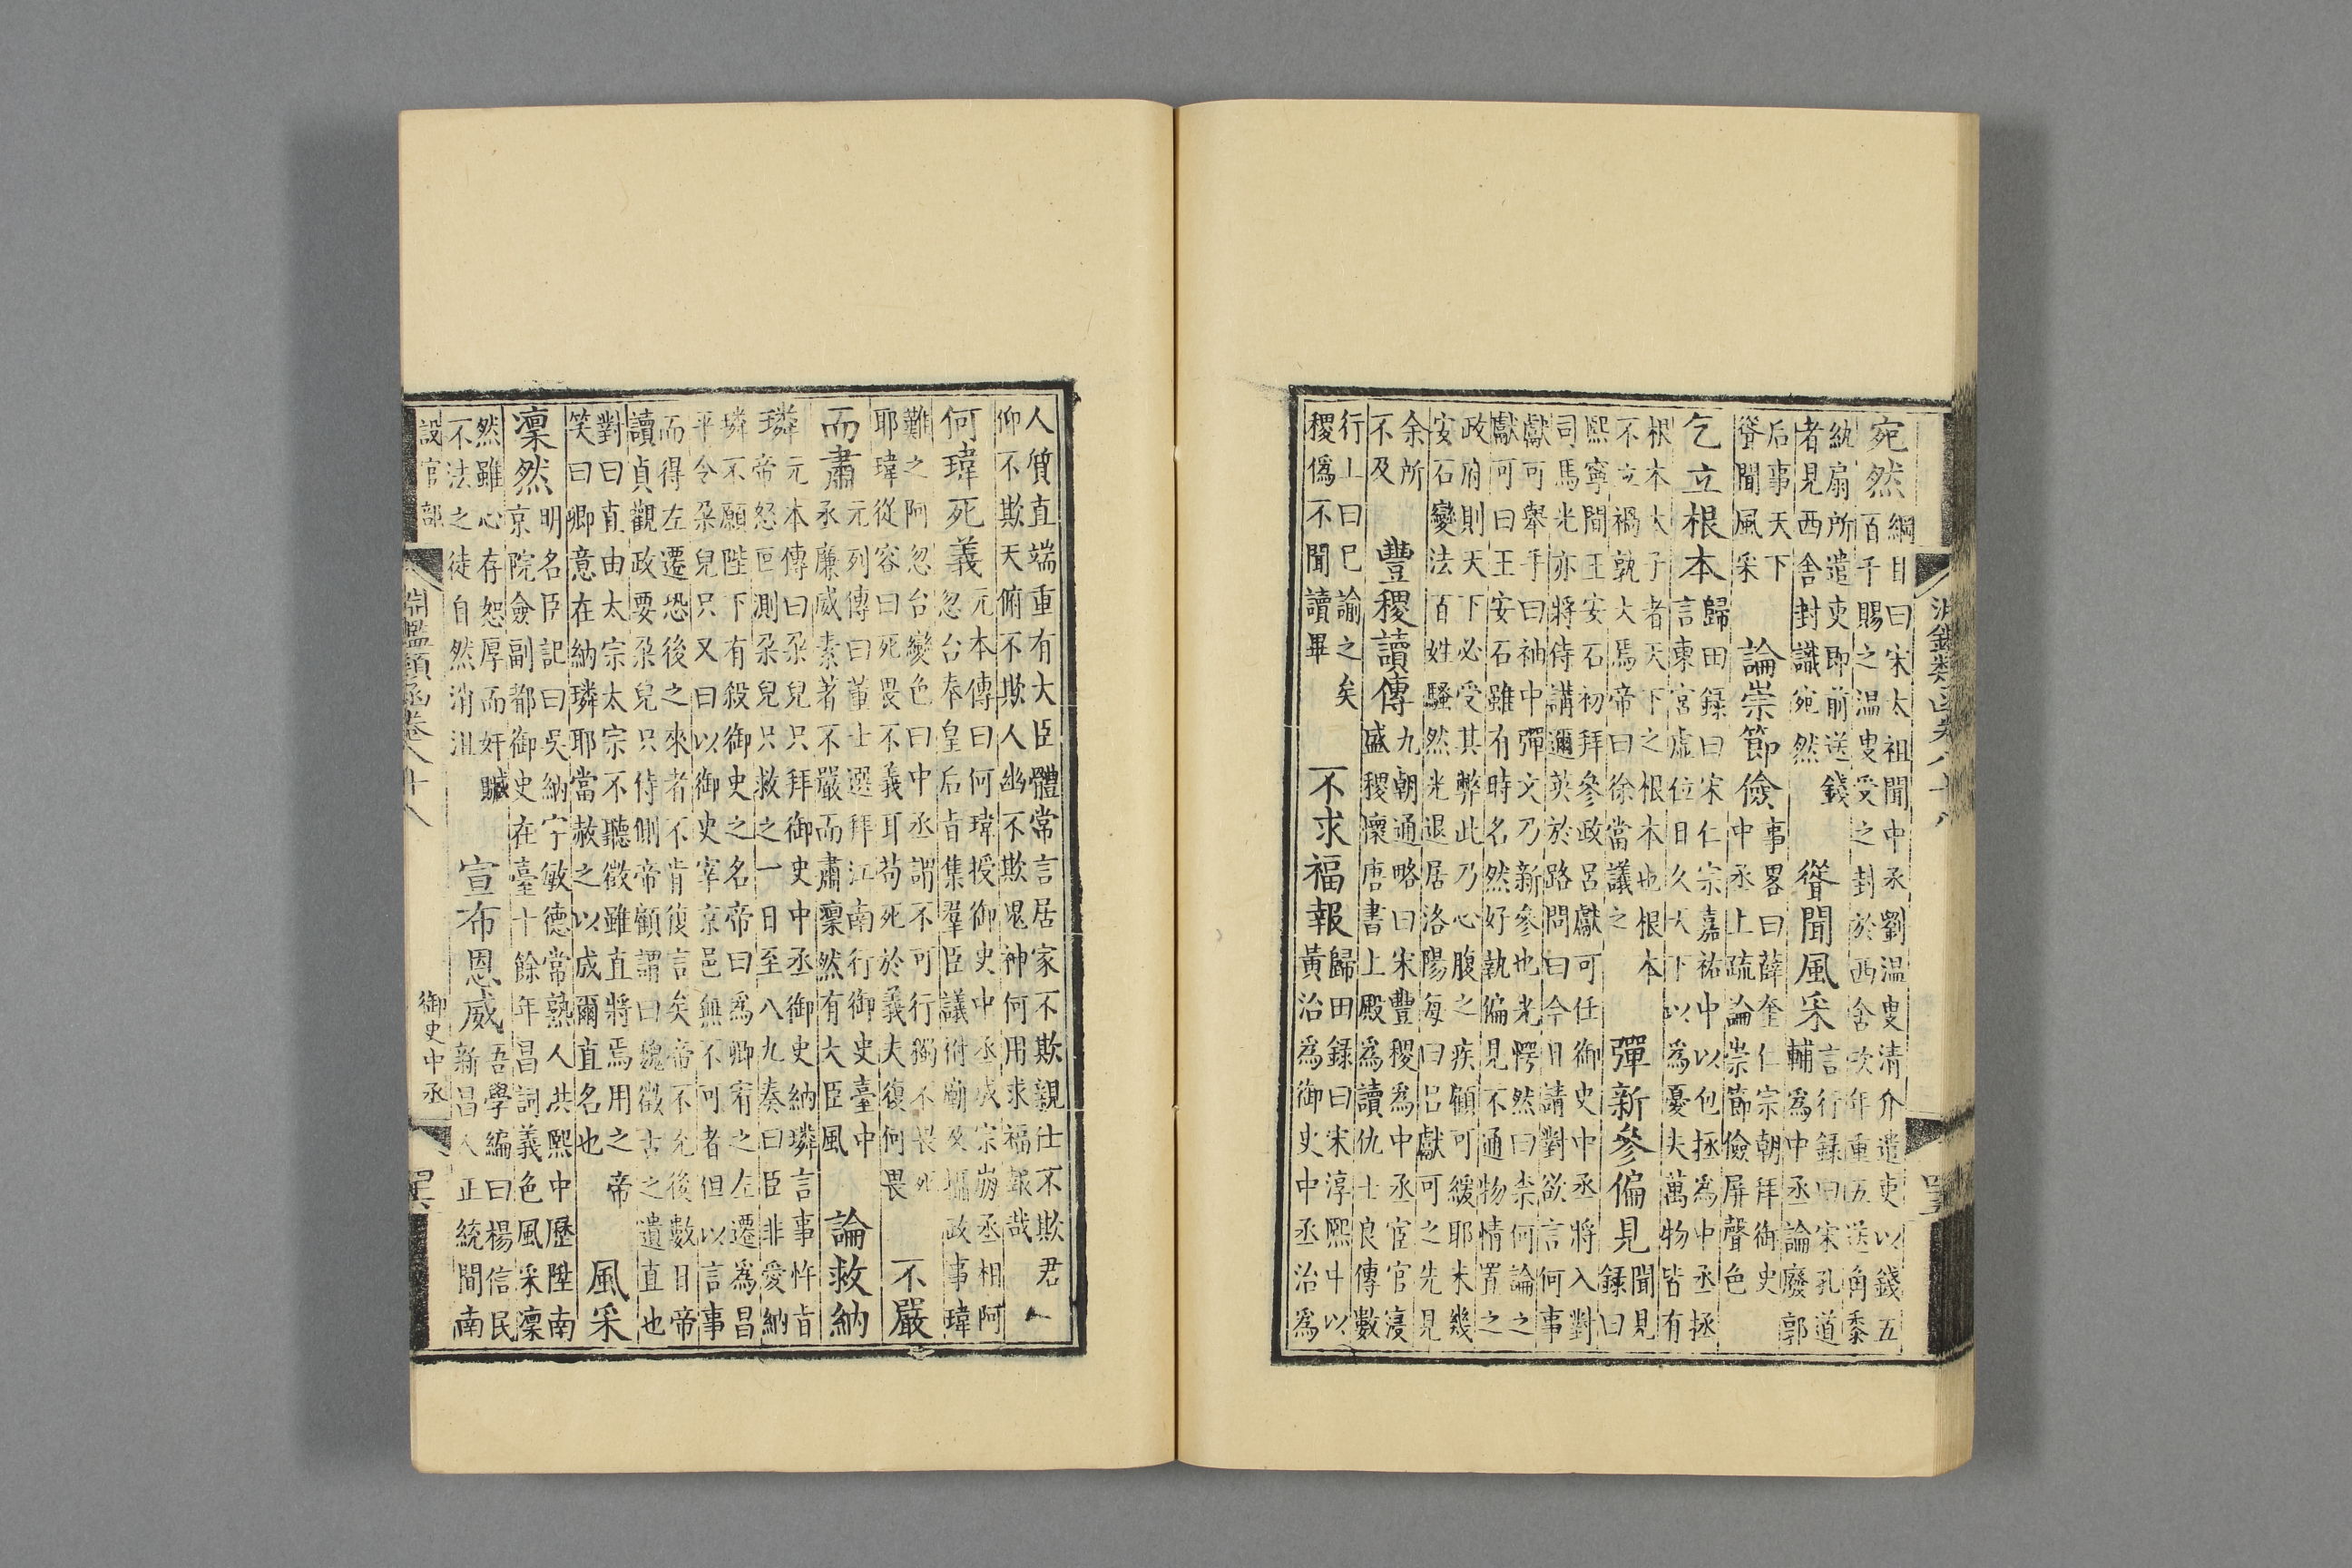 淵鑑類函卷八十八
宛然
綱目曰宋太祖聞中丞劉温叟清介遣吏以錢五
百千賜之温叟受之封於西舍次年重五送角黍
紈扇所遣吏即前送錢
者見西舍封識宛然
聳聞風采
言行録曰宋孔道
輔爲中丞論廢郭
后事天下
聳聞風采
論崇節儉
事畧曰薛奎仁宗朝拜御史
中丞上疏論崇節儉屏聲色
乞立根本
歸田録曰宋仁宗嘉祐中以包拯爲中丞拯
言東宮虛位日久天下以爲憂夫萬物皆有
根本太子者天下之根本也根本
不立禍孰大焉帝曰徐當議之
彈新參偏見
聞見
録曰
熙寧間王安石初拜參政呂獻可任御史中丞將入對
司馬光亦將侍講邇英於路問曰今日請對欲言何事
獻可舉手曰袖中彈文乃新參也光愕然曰柰何論之
獻可曰王安石雖有時名然好執偏見不通物情置之
政府則天下必受其弊此乃心腹之疾顧可緩耶未幾
安石變法百姓騷然光退居洛陽每曰呂獻可之先見
余所
不及
豐稷讀傳
九朝通略曰宋豐稷爲中丞宦官寖
盛稷懷唐書上殿爲讀仇士良傳數
行上曰已諭之矣
稷僞不聞讀畢
不求福報
歸田録曰宋淳熙中以
黃治爲御史中丞治爲
人質直端重有大臣體常言居家不欺親仕不欺君
仰不欺天俯不欺人幽不欺鬼神何用求福報哉
何瑋死義
元本傳曰何瑋授御史中丞成宗崩丞相阿
忽台奉皇后旨集羣臣議祔廟及攝政事瑋
難之阿忽台變色曰中丞謂不可行獨不畏死
耶瑋從容曰死畏不義耳苟死於義夫復何畏
不嚴
而肅
元列傳曰董士選拜江南行御史臺中
丞廉威素著不嚴而肅凜然有大臣風
論救納
璘
元本傳曰朶兒只拜御史中丞御史納璘言事忤旨
帝怒叵測朶兒只救之一日至八九奏曰臣非愛納
璘不願陛下有殺御史之名帝曰爲卿宥之左遷爲昌
平令朶兒只又曰以御史宰京邑無不可者但以言事
而得左遷恐後之來者不肯復言矣帝不允後數日帝
讀貞觀政要朶兒只侍側帝顧謂曰魏徵古之遺直也
對曰直由太宗太宗不聽徵雖直將焉用之帝
笑曰卿意在納璘耶當赦之以成爾直名也
風采
凜然
明名臣記曰吳納字敏德常熟人洪熙中歷陞南
京院僉副都御史在臺十餘年昌詞義色風采凜
然雖心存恕厚而奸贓
不法之徒自然消沮
宣布恩威
吾學編曰楊信民
新昌人正統間南
設官部
御史中丞
淵鑑類函卷八十八